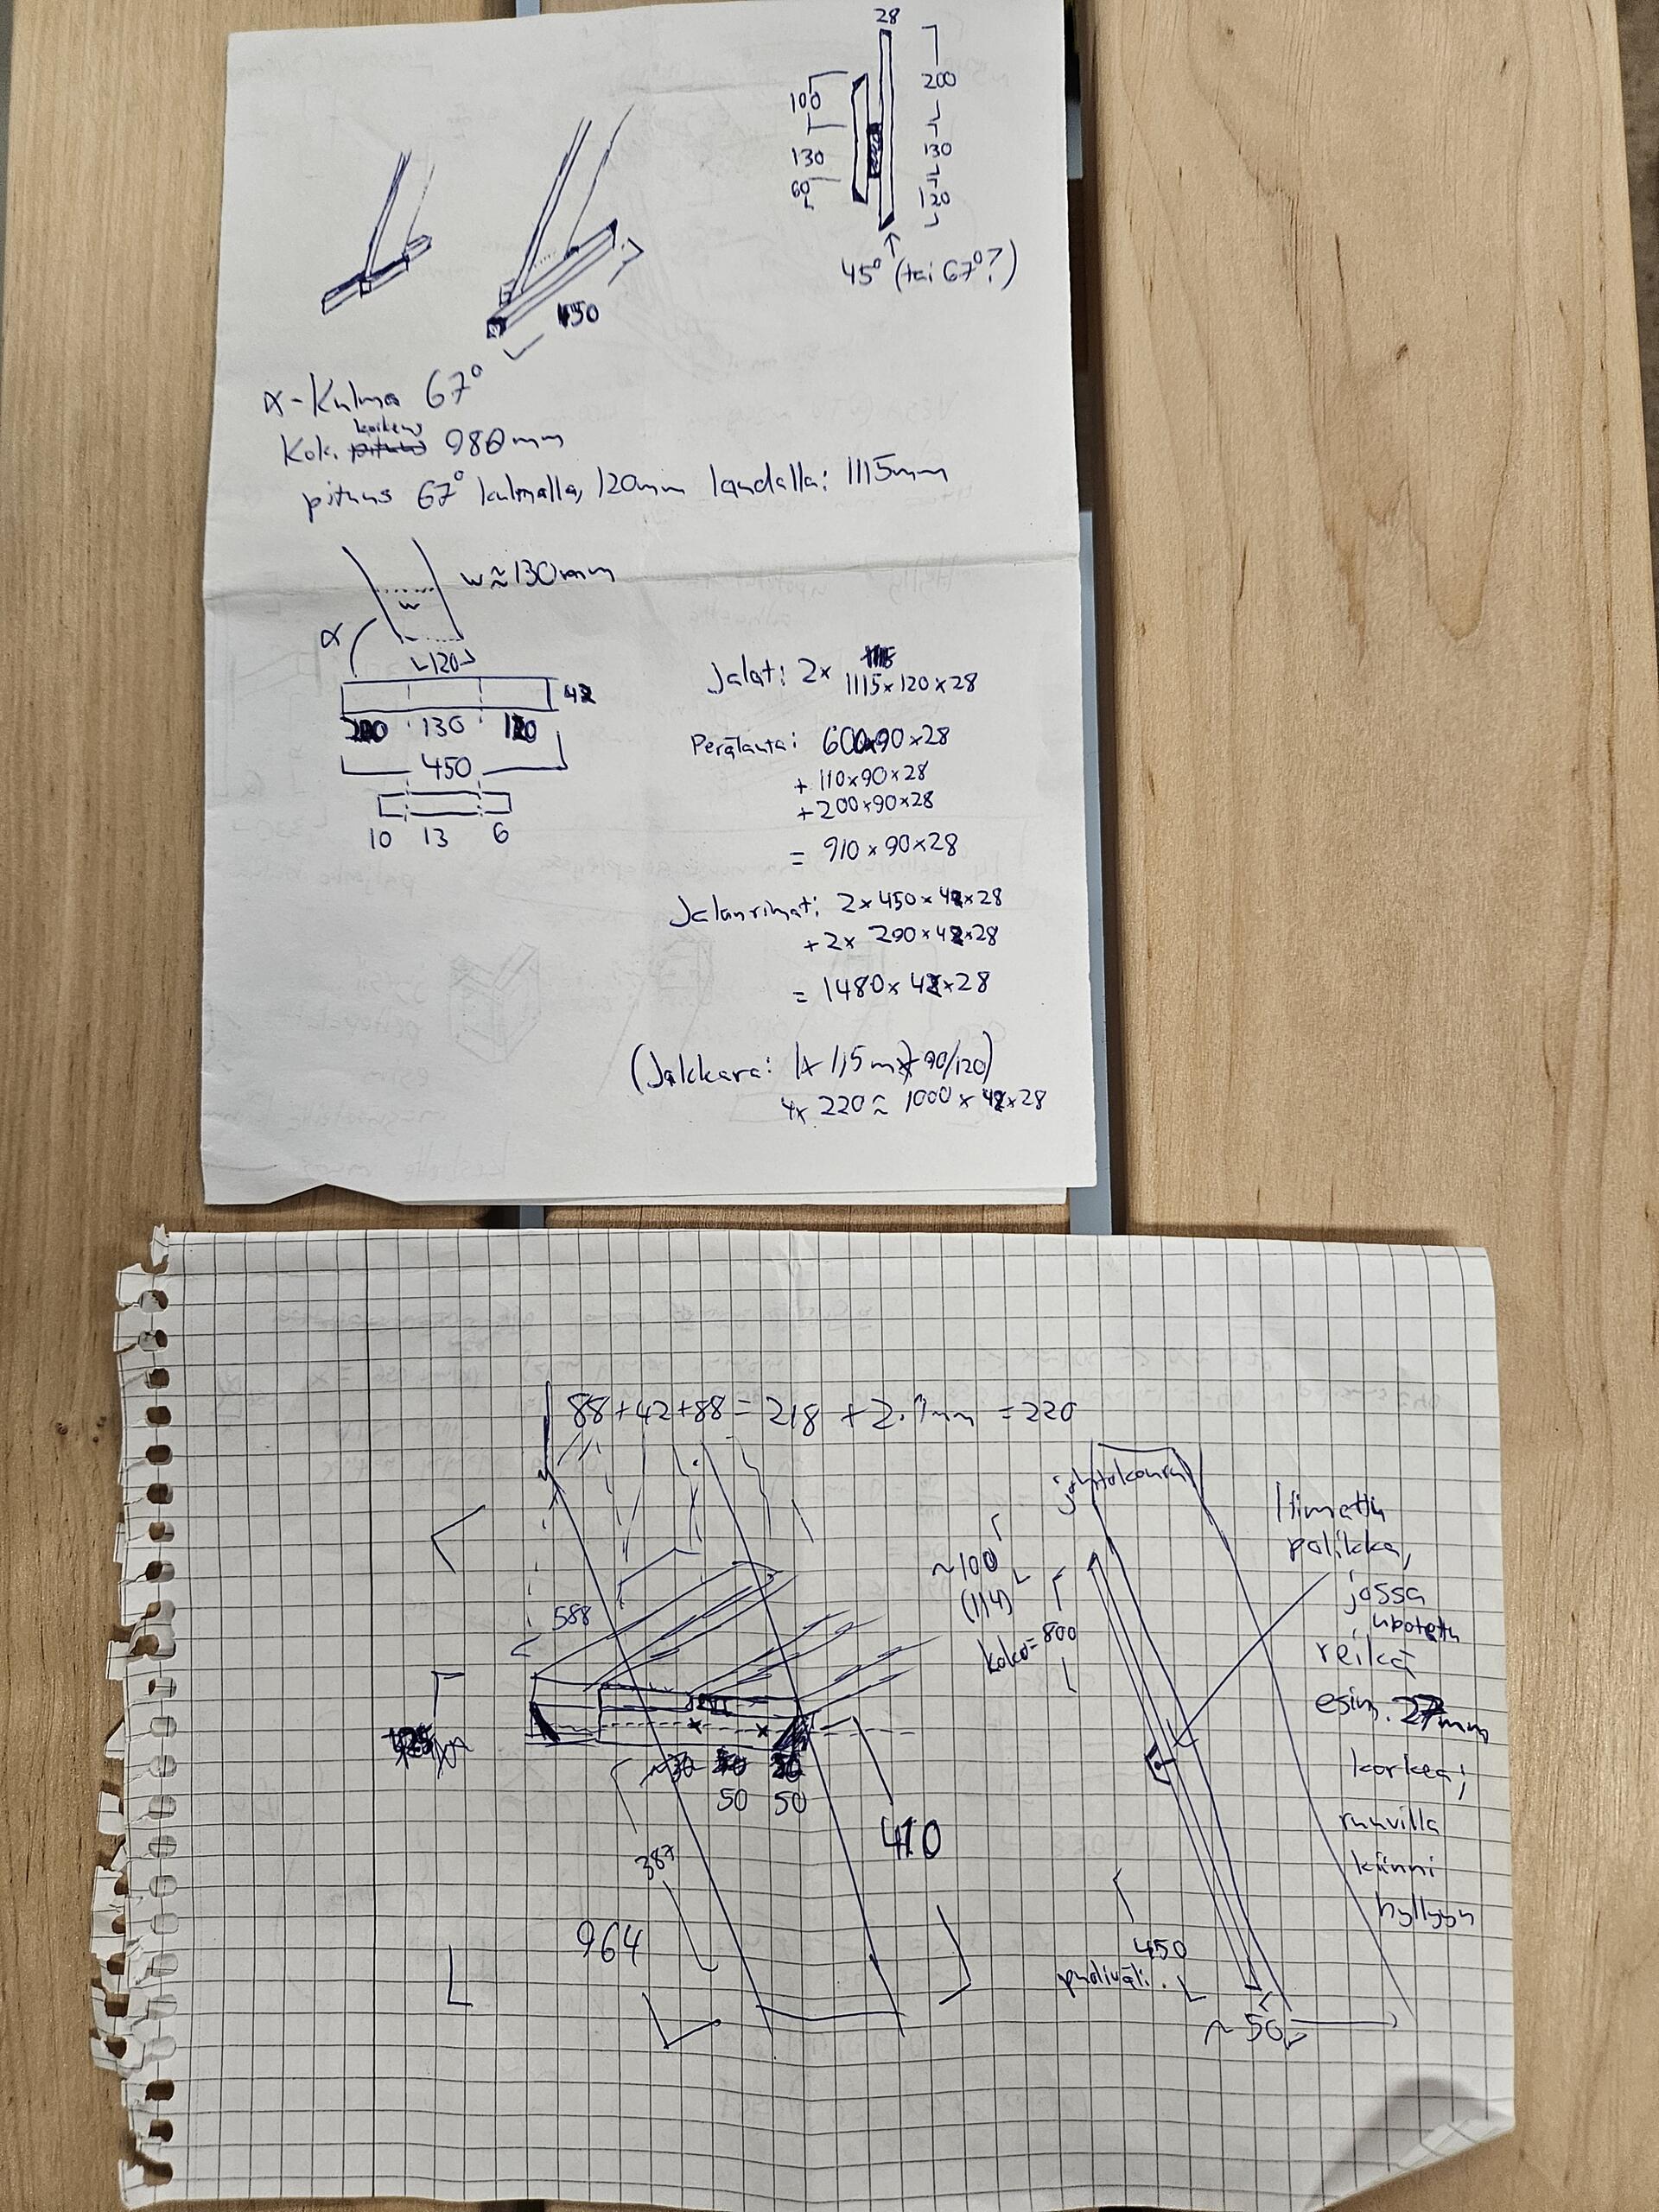 28
100
130
60
200
130
120
45° (tai 67°?)
450
α-Kulma 67°
Kok. korkeus 980mm
pituus 67° kulmalla, 120mm laudalla: 1115mm
w≈130mm
w
α
120
42
200 130 120
450
10 13 6
Jalat: 2x
1115x120x28
Perälauta: 600x90x28
+ 110x90x28
+ 200x90x28
= 910x90x28
Jalanrimat: 2x450x42x28
+2x 290x42x28
= 1480x42x28
(Jakkara: 1x 1,5m x 90/120)
4x 220 ≈ 1000x42x28
88+42+88=218 + 2·1mm =220
johtokouru
~100
(114)
koko=800
588
50 50
410
387
964
450
puoliväli.
~50
Liimattu
palikka,
jossa
upotettu
reikä
esim. 27mm
korkea;
ruuvilla
kiinni
hyllyyn